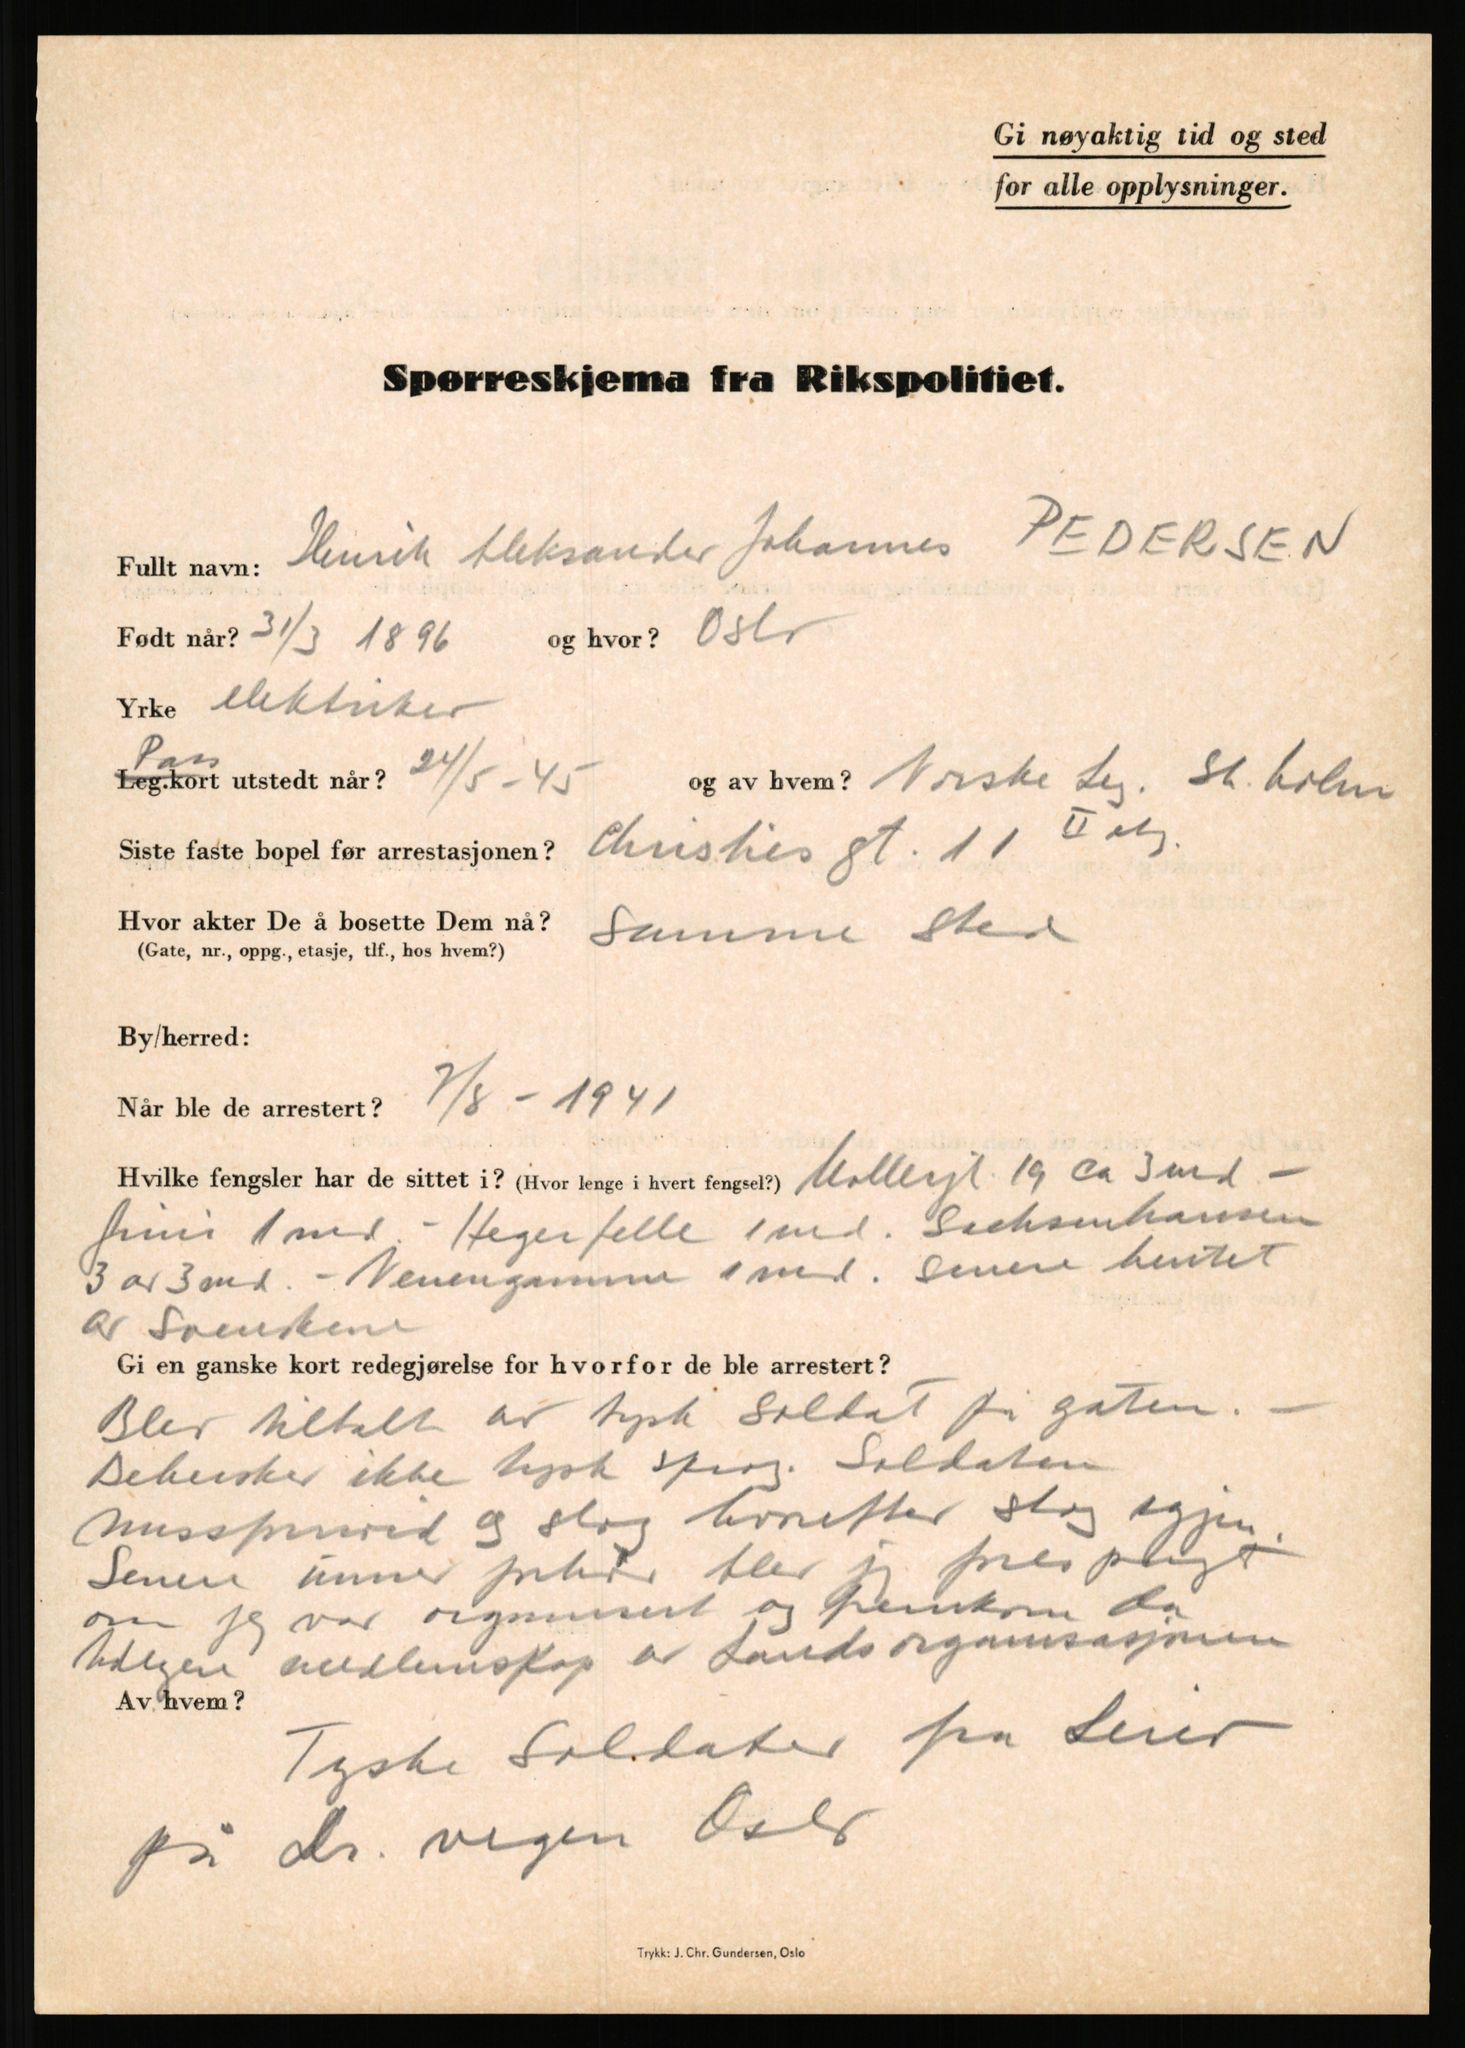 Gi nøyaktig tid og sted
for alle opplysninger.
Spørreskjema fra Rikspolitiet.
Fullt navn: Henrik Aleksander Johannes PEDERSEN
Født når? 31/3 1896 og hvor? Oslo
Yrke elektriker
Pass
Leg.kort utstedt når? 24/5-45 og av hvem? Norske Leg. St.holm
Siste faste bopel før arrestasjonen? Christies gt. 11 II etg.
Hvor akter De å bosette Dem nå? Samme sted
(Gate, nr., oppg., etasje, tlf., hos hvem?)
By/herred:
Når ble de arrestert? 7/8 - 1941
Hvilke fengsler har de sittet i? (Hvor lenge i hvert fengsel?) Møllergt. 19 ca 3 md -
Grini 1 md. - Hegerfelle 1 md. Sachsenhausen
3 år 3 md. - Neuengamme 1 md. Senere hentet
av Svenskene
Gi en ganske kort redegjørelse for hvorfor de ble arrestert?
Blev tiltalt av tysk Soldat på gaten. -
Behersker ikke tysk sprog. Soldaten
misforstod og slog hvorefter slog igjen.
Senere under forhør blev jeg forespurgt
om jeg var organisert og fremkom da
tidligere medlemskap av Landsorganisasjonen
Av hvem?
Tyske Soldater fra Leir
på Dr. vegen Oslo
Trykk: J. Chr. Gundersen, Oslo